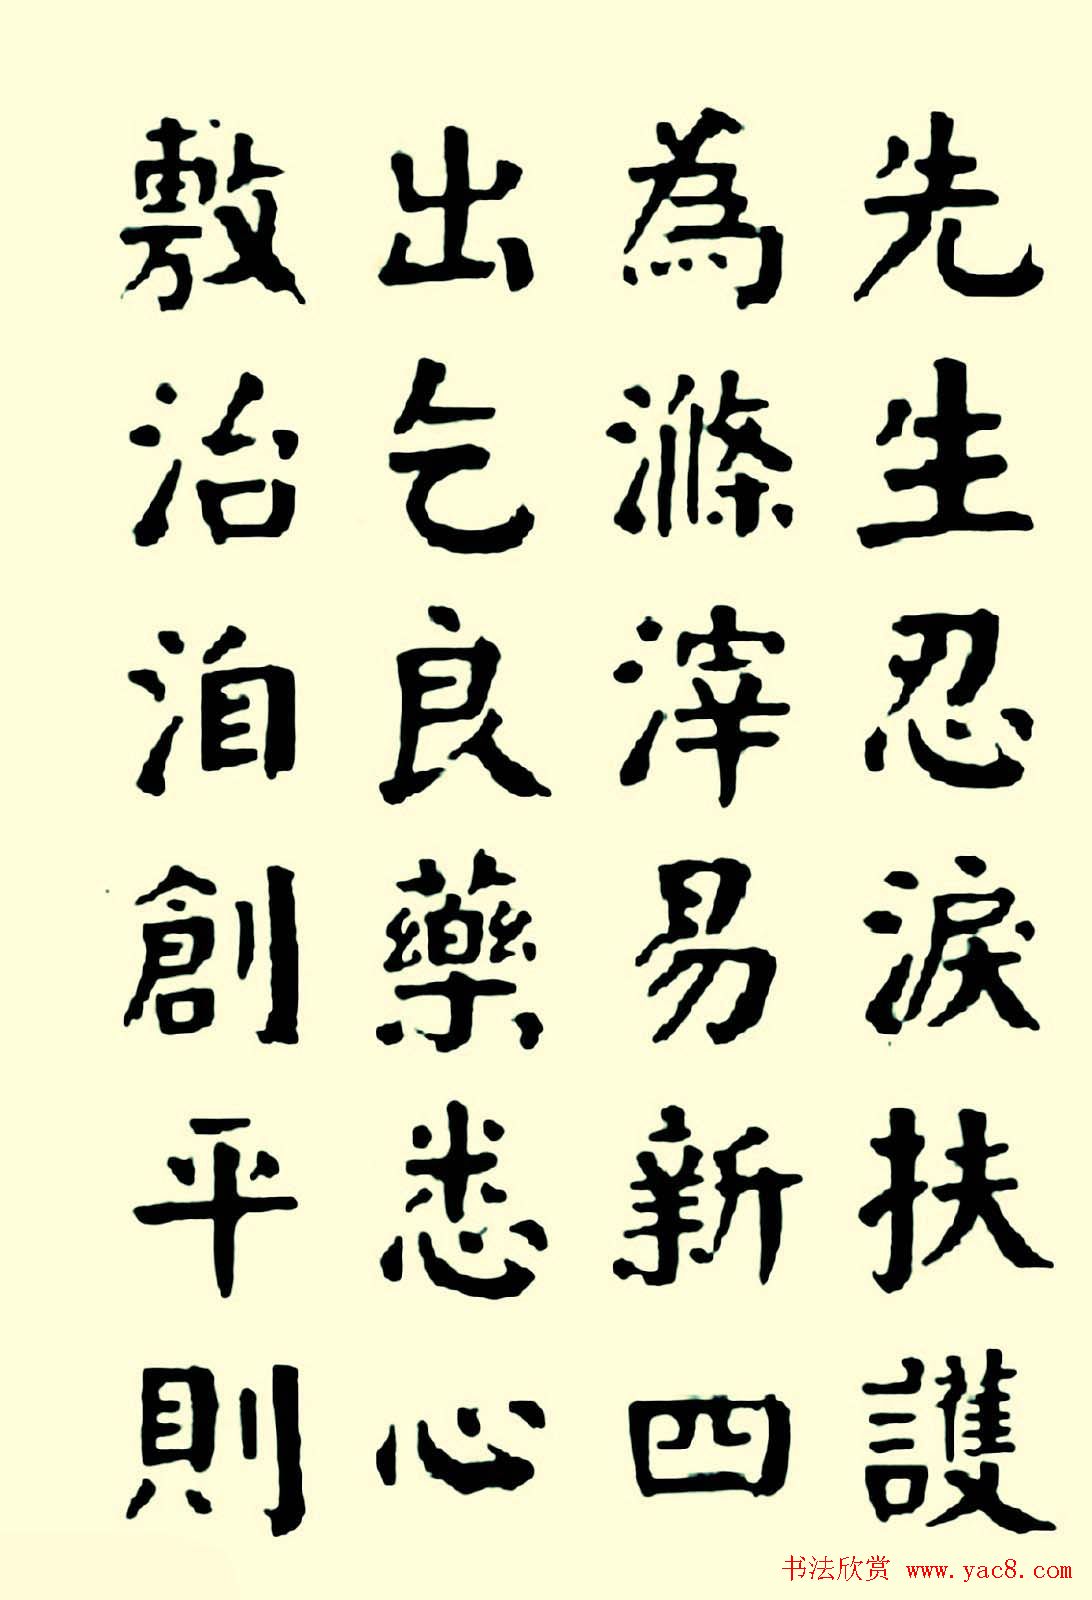 先生忍淚扶護
為滌滓易新四
出乞良藥悉心
敷治洎創平則
书法欣赏 www.yac8.com